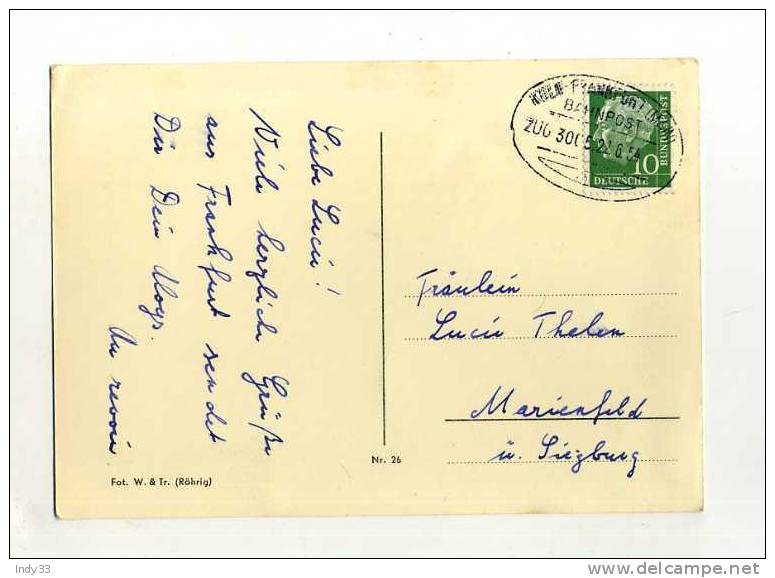 Liebe Lucie!
Viele herzliche Grüße
aus Frankfurt sendet
Dir Dein Aloys.
Au revoir
Fot. W. & Tr. (Röhrig)
Nr. 26
FRANKFURT
BAHNPOST
ZUG 22.6.54
10
DEUTSCHE
BUNDESPOST
Fräulein
Lucie Thelen
Marienfeld
ü. Siegburg
Indy33
www.delcampe.net